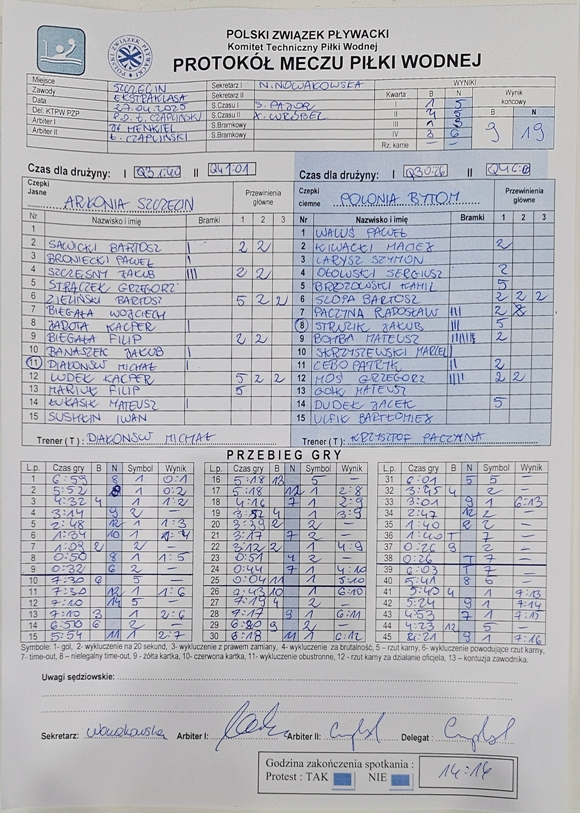 POLSKI ZWIĄZEK PŁYWACKI
Komitet Techniczny Piłki Wodnej
PROTOKÓŁ MECZU PIŁKI WODNEJ
Miejsce SZCZECIN Sekretarz I N. NOWAKOWSKA WYNIKI
Zawody EKSTRAKLASA Sekretarz II Kwarta B N Wynik końcowy
Data 27.04.2025 S.Czasu I I 1 5 B N
Del. KTPW PZP Ł. CZAPLIŃSKI S.Czasu II K. WRÓBEL II
Arbiter I HENKIEL S.Bramkowy III 9 19
Arbiter II Ł. CZAPLIŃSKI S.Bramkowy IV 3 6
Rz. karne
Czas dla drużyny: I Q3 1:40 II Q4 1:01
Czas dla drużyny: I Q3 0:26 II
Czepki Jasne ARKONIA SZCZECIN Bramki Przewinienia główne
Nr Nazwisko i imię Bramki 1 2 3
1
2 SAWICKI BARTOSZ I 2 2
3 BRONIECKI PAWEŁ I
4 SZCZĘSNY JAKUB III 2 2
5 STRĄCZEK GRZEGORZ
6 ZIELIŃSKI BARTOSZ I 5 2 2
7 BIEGAŁA WOJCIECH
8 JAROTA KACPER I
9 BIEGAŁA FILIP 2 2
10 BANASZEK JAKUB I
11 DIAKONÓW MICHAŁ
12 LUDEK KACPER 5 2 2
13 MARIUK FILIP 5
14 ŁUKASIK MATEUSZ I
15 SUSHKIN IWAN
Trener ( T ) : DIAKONÓW MICHAŁ
Czepki ciemne POLONIA BYTOM Przewinienia główne
Nr Nazwisko i imię Bramki 1 2 3
1 WALUŚ PAWEŁ
2 KIWACKI MACIEJ 2
3 LARYSZ SZYMON
4 OGŁOWSKI SERGIUSZ 2
5 BRZOZOWSKI KAMIL 5
6 SŁOPA BARTOSZ 2 2 2
7 PACZYNA RADOSŁAW III 2
8 STRUZIK JAKUB III 5
9 BOMBA MATEUSZ 2
10 SKRZYSZEWSKI MARCEL I
11 CEBO PATRYK II 2
12 MOŚ GRZEGORZ IIII 2 2
13 MATEUSZ
14 DUDEK JACEK 5
15 ULFIK BARTŁOMIEJ
Trener ( T ) : KRZYSZTOF PACZYNA
PRZEBIEG GRY
L.p. Czas gry B N Symbol Wynik
1 6:59 8 1 0:1
2 5:52 1 0:2
3 4:32 4 1
4 3:14 9 2 –
5 2:48 12 1 1:3
6 1:34 10 1
7 1:09 2 2 –
8 0:50 8 1 1:5
9 0:32 6 2 –
10 7:30 6 5 –
11 7:30 12 1 1:6
12 7:10 14 5 –
13 7:10 3 1 2:6
14 6:50 6 2 –
15 5:54 11 1 2:7
L.p. Czas gry B N Symbol Wynik
16 5:18 13 5 –
17 5:18 12 1 2:8
18 4:16 7 1 2:9
19 3:52 4 1 3:9
20 3:39 2 2
21 3:17 7 2
22 3:12 2 1 4:9
23 0:51 4 2 –
24 0:44 7 1 4:10
25 0:04 11 1 5:10
26 10 1 6:10
27 7:19 4 2 –
28 7:17 9 1 6:11
29 9 2 –
30 6:18 11 1 6:12
L.p. Czas gry B N Symbol Wynik
31 6:01 5 5 –
32 3:45 4 2 –
33 3:01 9 1 6:13
34 2:47 12 2 –
35 1:40 2 –
36 1:40 T 7 –
37 0:26 8 2 –
38 0:26 T 7 –
39 6:03 T 7 –
40 5:41 8 –
41 5:40 4 1 7:13
42 5:24 9 1 7:14
43 4:53 7 1 7:15
44 4:23 12 5 –
45 9 1 7:16
Symbole: 1- gol, 2- wykluczenie na 20 sekund, 3- wykluczenie z prawem zamiany, 4- wykluczenie za brutalność, 5 – rzut karny, 6- wykluczenie powodujące rzut karny,
7- time-out, 8 – nielegalny time-out, 9 - żółta kartka, 10- czerwona kartka, 11- wykluczenie obustronne, 12 - rzut karny za działanie oficjela, 13 – kontuzja zawodnika.
Uwagi sędziowskie:
Sekretarz: Nowakowska Arbiter I: Arbiter II: Delegat :
Godzina zakończenia spotkania :
Protest : TAK NIE 14:14